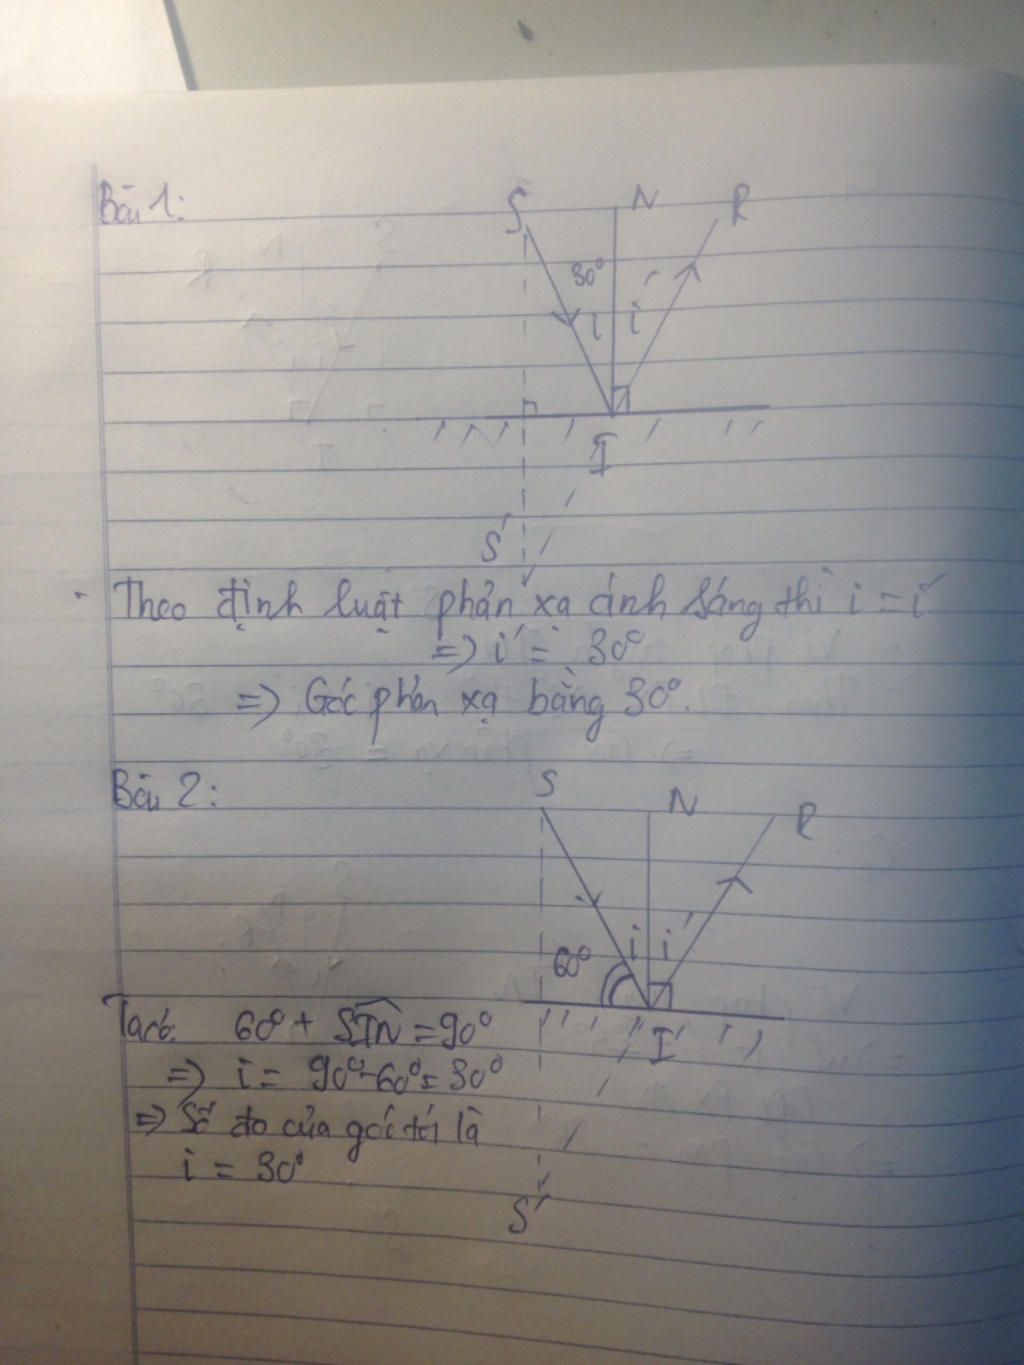 Bài 1:
S N R
30°
i i'
I
S'
- Theo định luật phản xạ ánh sáng thì i = i'
=> i' = 30°
=> Góc phản xạ bằng 30°.
Bài 2:
S N R
i i'
60°
I
Ta có: 60° + SIN = 90°
=> i = 90° - 60° = 30°
=> Số đo của góc tới là
i = 30°
S'